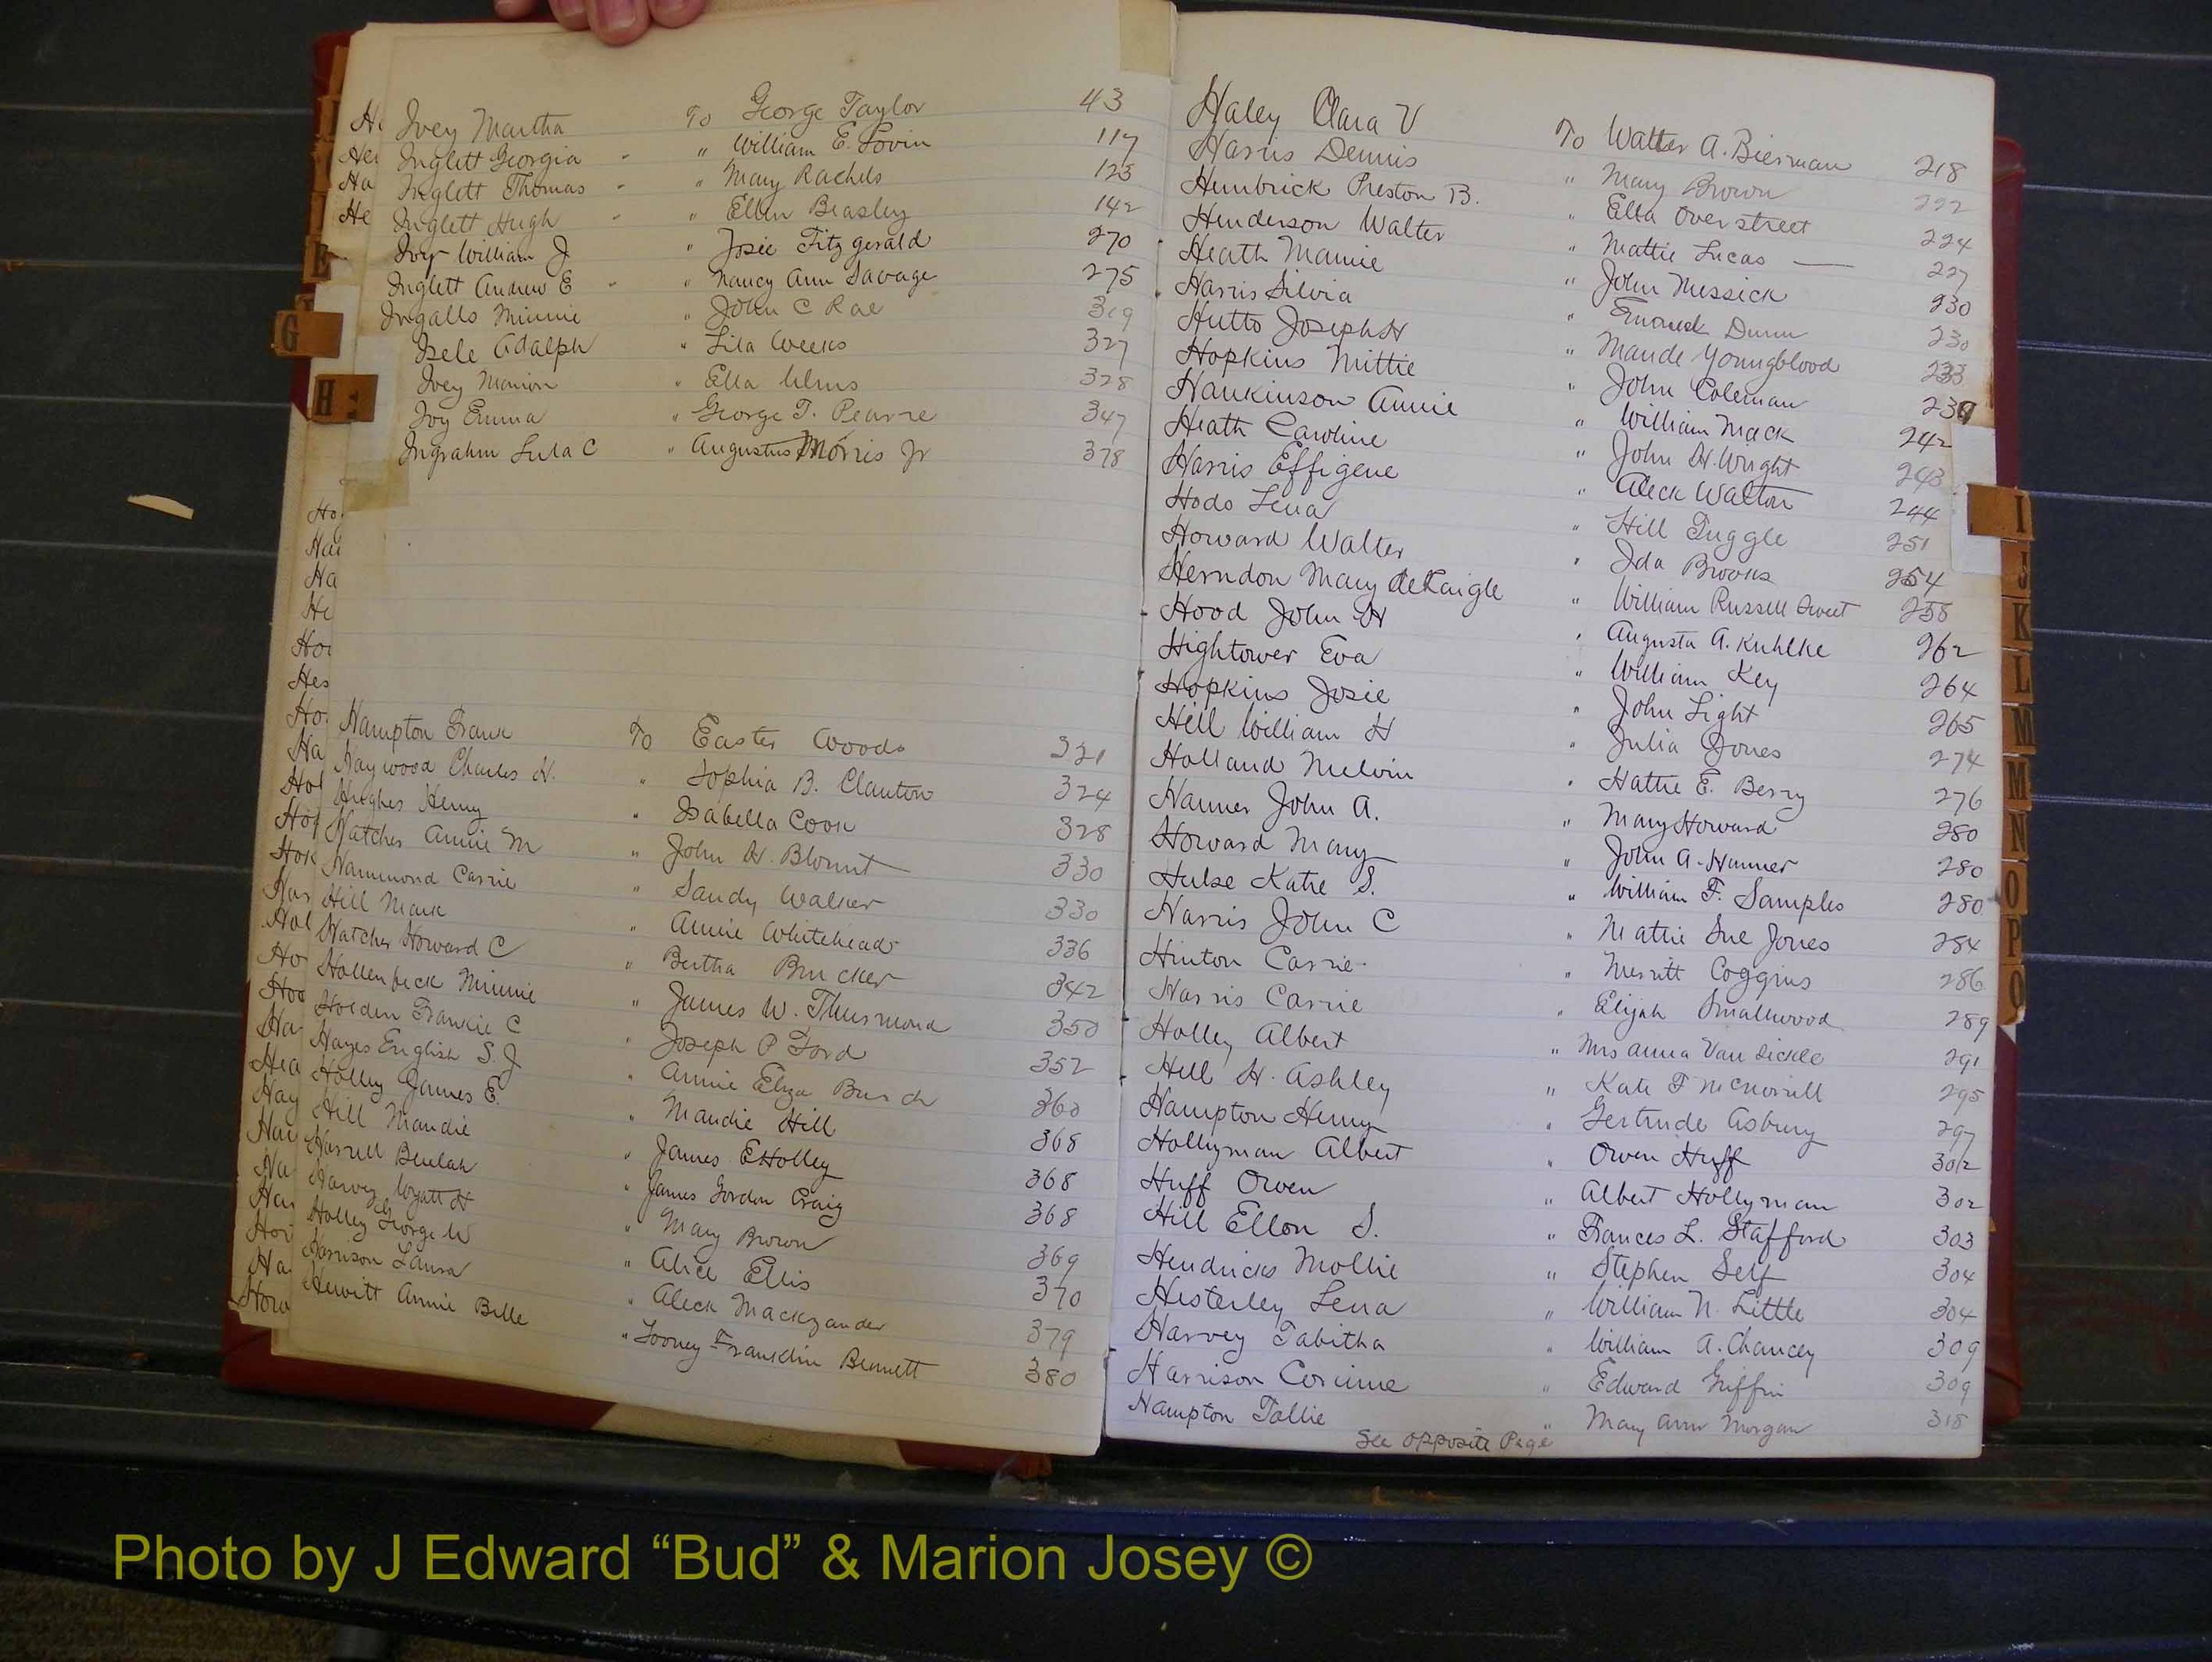 Ivey Martha To George Taylor 43
Inglett Georgia - " William E. Lovin 117
Inglett Thomas - " Mary Rachels 123
Inglett Hugh - " Ellen Beasley 142
Ivy William J " Josie Fitzgerald 270
Inglett Andrew E - " Nancy Ann Savage 275
Ingalls Minnie " John C Rae 319
Isele Adalph " Lila Weeks 327
Ivey Marion " Ella Ulms 328
Ivy Emma " George T. Pearre 347
Ingrahm Lula C " Augustus Morris Jr 378
Hampton Frank To Easter Woods 321
Haywood Charles H. " Sophia B. Clanton 324
Hughes Henry " Isabella Cook 328
Hatcher Annie M " John H. Blount 330
Hammond Carrie " Sandy Walker 330
Hill Mark " Annie Whitehead 336
Hatcher Howard C " Bertha Brucker 342
Hollenbeck Minnie " James W. Thurmond 350
Holden Frankie C " Joseph P Ford 352
Hayes English S. J " Annie Eliza Busch 360
Holley James E. " Maudie Hill 368
Hill Maudie " James E Holley 368
Harrell Beulah " James Gordon Craig 368
Harvey Wyatt H " Mary Brown 369
Holley George W " Alice Ellis 370
Harrison Laura " Aleck Mackzander 379
Hewitt Annie Belle " Looney Franklin Bennett 380
Haley Clara V To Walter A. Bierman 218
Harris Dennis " Mary Brown 222
Hembrick Preston B. " Ella Overstreet 224
Henderson Walter " Mattie Lucas — 227
Heath Mamie " John Messick 230
Harris Silvia " Dunn 230
Hutto Joseph H " Maude Youngblood 233
Hopkins Mittie " John Coleman 239
Hankinson Annie " William Mack 242
Heath Caroline " John H. Wright 243
Harris Effigene " Aleck Walton 244
Hodo Lena " Hill Tuggle 251
Howard Walter " Ida Brooks 254
Herndon Mary deLaigle " William Russell Sweet 258
Hood John H " Augusta A. Kuhlke 262
Hightower Eva " William Key 264
Hopkins Josie " John Light 265
Hill William H " Julia Jones 274
Holland Melvin " Hattie E. Berry 276
Hanner John A. " Mary Howard 280
Howard Mary " John A. Hanner 280
Hulse Katie S. " William F. Samples 280
Harris John C " Mattie Sue Jones 284
Hinton Carrie " Merritt Coggins 286
Harris Carrie " Elijah Smallwood 289
Holley Albert " Mrs Anna Van Sickle 291
Hill H. Ashley " Kate F McNorrill 295
Hampton Henry " Gertrude Asbury 297
Hollyman Albert " Owen Huff 302
Huff Owen " Albert Hollyman 302
Hill Ellon S. " Frances L. Stafford 303
Hendricks Mollie " Stephen Self 304
Hesterley Lena " William N. Little 304
Harvey Tabitha " William A. Chancey 309
Harrison Corinne " Edward Griffin 309
Hampton Tallie " Mary Ann Morgan 318
See Opposite Page
E
G
H
I
J
K
L
M
M
N
O
P
Q
Photo by J Edward “Bud” & Marion Josey ©